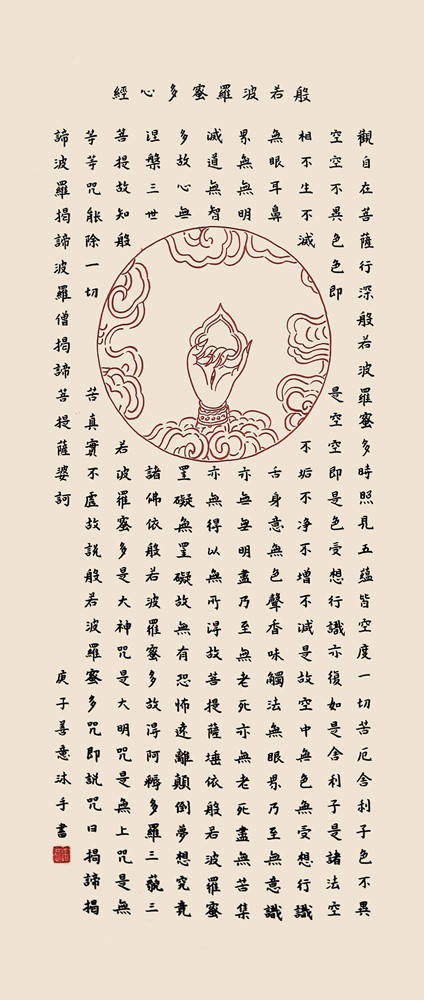 般若波羅蜜多心經
觀自在菩薩行深般若波羅蜜多時照見五蘊皆空度一切苦厄舍利子色不異
空空不異色色即是空空即是色受想行識亦復如是舍利子是諸法空
相不生不滅不垢不净不增不減是故空中無色無受想行識
無眼耳鼻舌身意無色聲香味觸法無眼界乃至無意識
界無無明亦無無明盡乃至無老死亦無老死盡無苦集
滅道無智亦無得以無所得故菩提薩埵依般若波羅蜜
多故心無罣礙無罣礙故無有恐怖遠離顛倒夢想究竟
涅槃三世諸佛依般若波羅蜜多故得阿耨多羅三藐三
菩提故知般若波羅蜜多是大神咒是大明咒是無上咒是無
等等咒能除一切苦真實不虛故説般若波羅蜜多咒即説咒曰揭諦揭
諦波羅揭諦波羅僧揭諦菩提薩婆訶
庚子善意沐手書